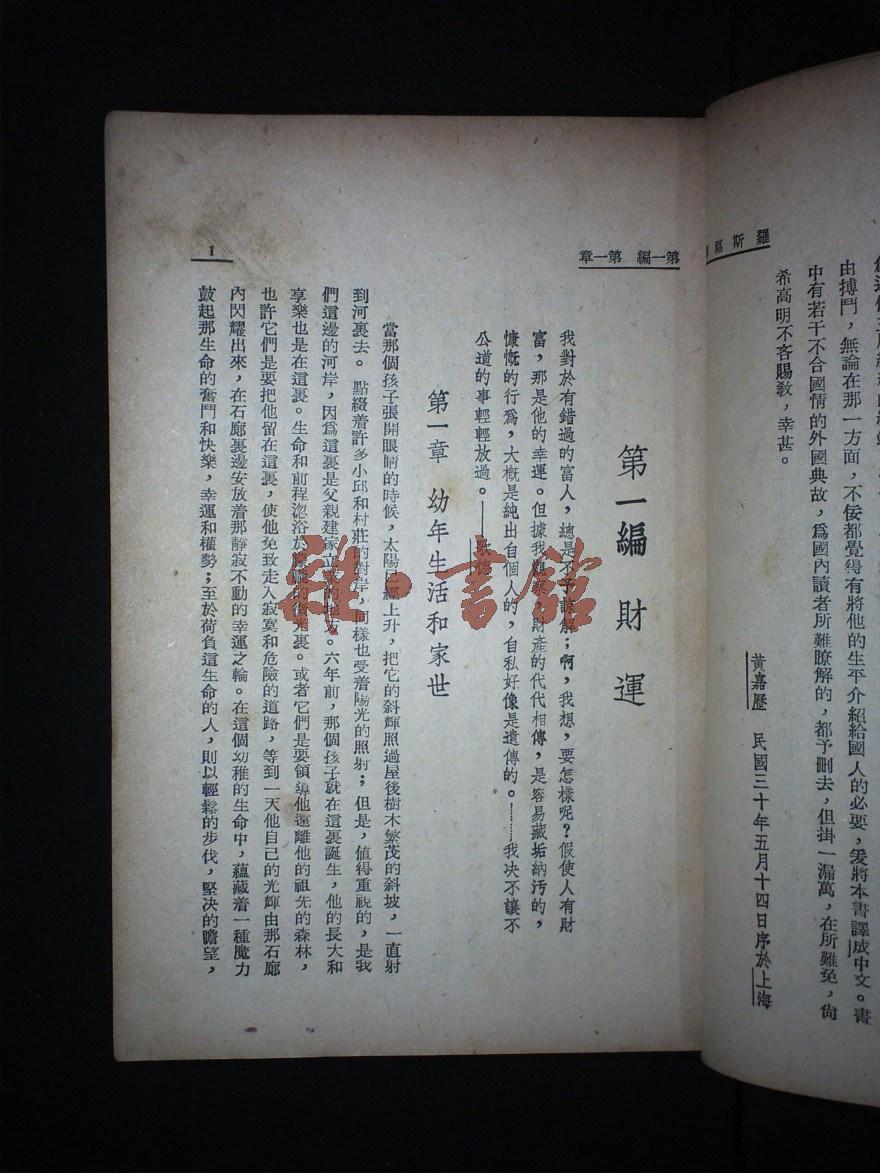 羅斯福
由搏鬥，無論在那一方面，不佞都覺得有將他的生平介紹給國人的必要，爰將本書譯成中文。書
中有若干不合國情的外國典故，爲國內讀者所難瞭解的，都予刪去，但掛一漏萬，在所難免，尙
希高明不吝賜敎，幸甚。
黃嘉歷 民國三十年五月十四日序於上海
第一編 第一章
第一編 財運
我對於有錯過的富人，總是不予諒解；啊，我想，要怎樣呢？假使人有財
富，那是他的幸運。但據我觀察，財產的代代相傳，是容易藏垢納汚的，
慷慨的行爲，大概是純出自個人的，自私好像是遺傳的。……我决不讓不
公道的事輕輕放過。——歌德
第一章 幼年生活和家世
當那個孩子張開眼睛的時候，太陽已經上升，把它的斜輝照過屋後樹木繁茂的斜坡，一直射
到河裏去。點綴着許多小邱和村莊的對岸，同樣也受着陽光的照射；但是，値得重視的，是我
們這邊的河岸，因爲這裏是父親建家立業的地方。六年前，那個孩子就在這裏誕生，他的長大和
享樂也是在這裏。生命和前程沐浴於的光裏。或者它們是要領導他遠離他的祖先的森林，
也許它們是要把他留在這裏，使他免致走入寂寞和危險的道路，等到一天他自己的光輝由那石廊
內閃耀出來，在石廊裏邊安放着那靜寂不動的幸運之輪。在這個幼稚的生命中，蘊藏着一種魔力
鼓起那生命的奮鬥和快樂，幸運和權勢；至於荷負這生命的人，則以輕鬆的步伐，堅决的瞻望，
1
雜·書館